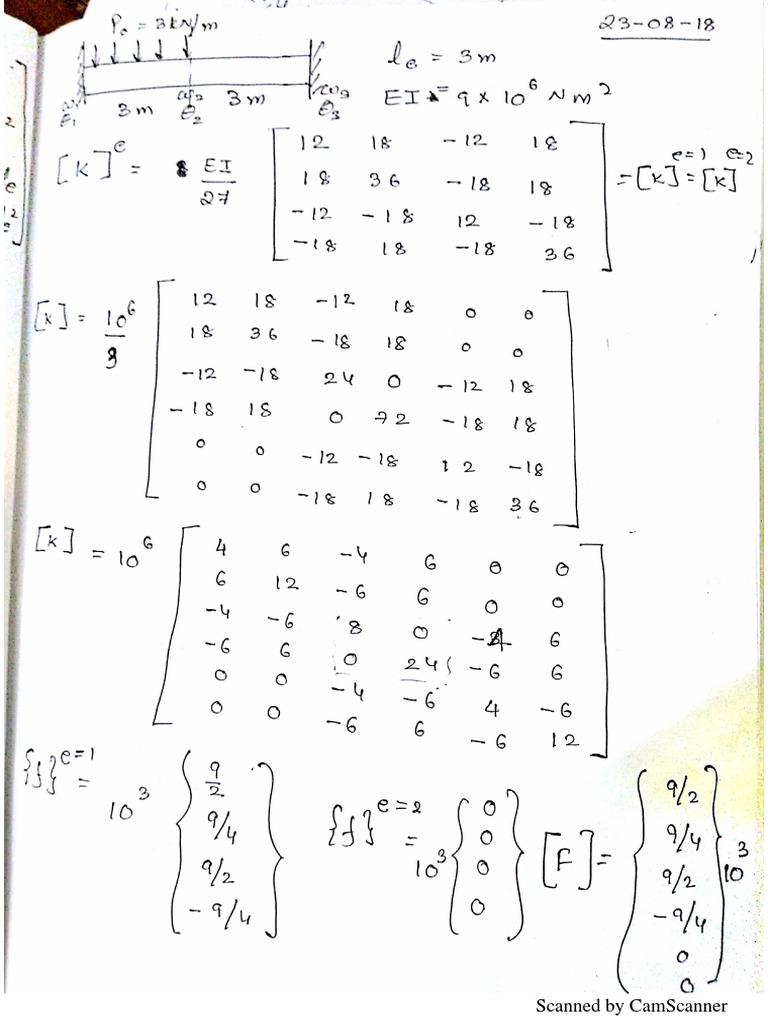 23-08-18
P₀ = 3kN/m
lₑ = 3m
EI = 9 × 10⁶ Nm²
3m 3m
θ₁ ω₂ θ₂ ω₃ θ₃
[K]ᵉ = EI/27 [12 18 -12 18
18 36 -18 18
-12 -18 12 -18
-18 18 -18 36] = [K]ᵉ⁼¹ = [K]ᵉ⁼²
[K] = 10⁶/3 [12 18 -12 18 0 0
18 36 -18 18 0 0
-12 -18 24 0 -12 18
-18 18 0 72 -18 18
0 0 -12 -18 12 -18
0 0 -18 18 -18 36]
[K] = 10⁶ [4 6 -4 6 0 0
6 12 -6 6 0 0
-4 -6 8 0 -4 6
-6 6 0 24 -6 6
0 0 -4 -6 4 -6
0 0 -6 6 -6 12]
{f}ᵉ⁼¹ = 10³ {9/2
9/4
9/2
-9/4}
{f}ᵉ⁼² = 10³ {0
0
0
0}
[F] = {9/2
9/4
9/2
-9/4
0
0} 10³
Scanned by CamScanner